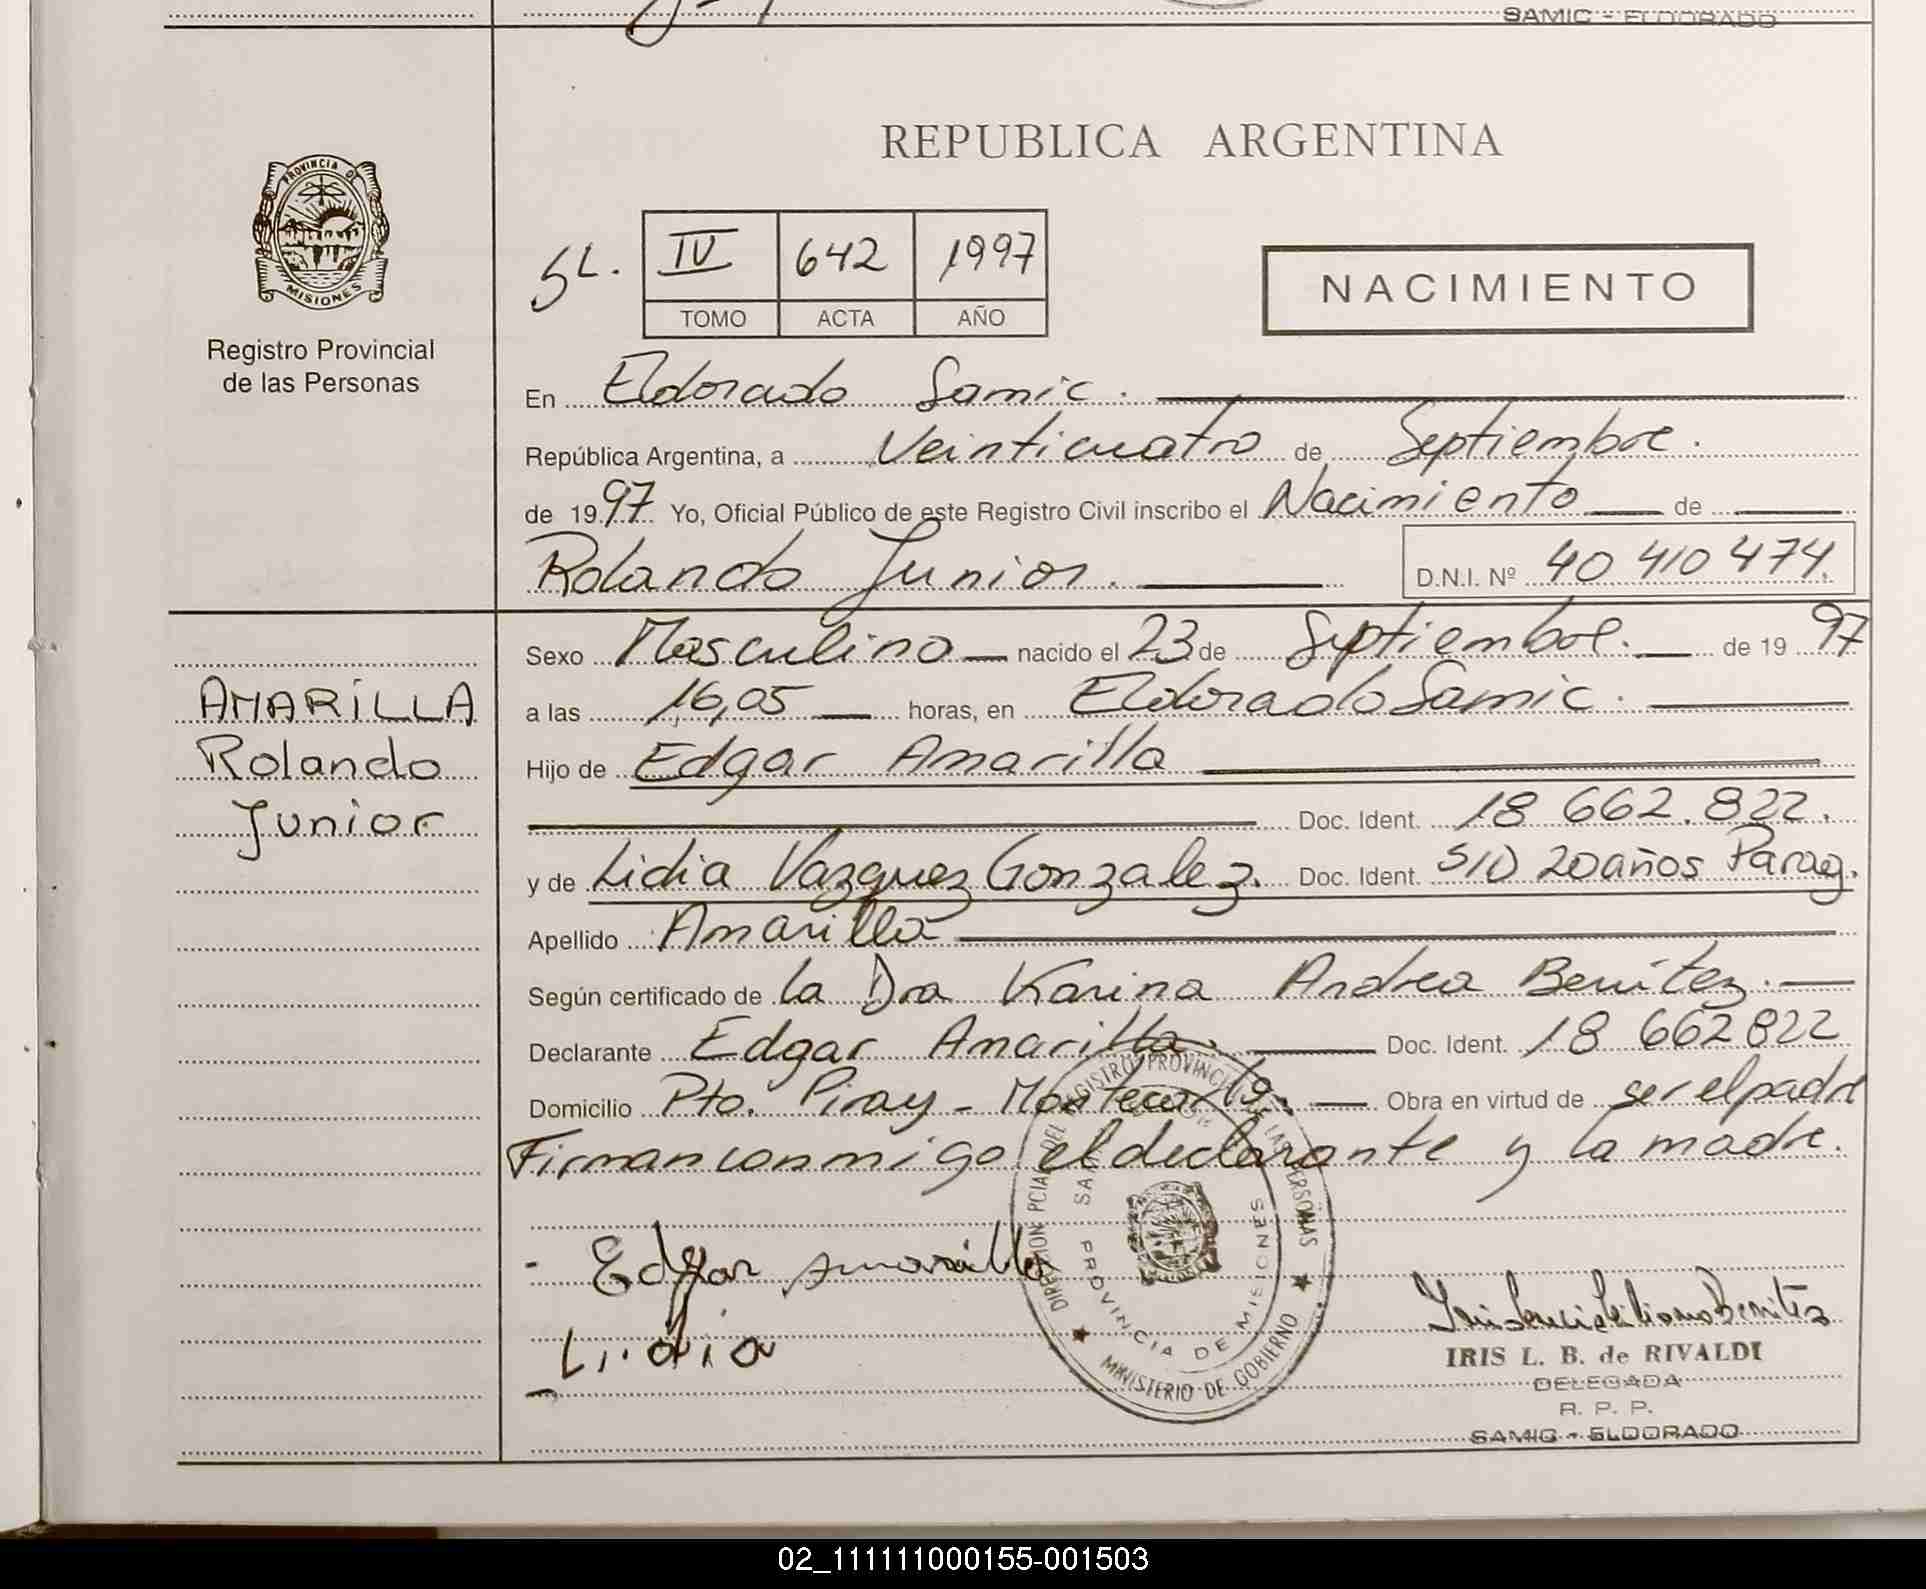 SAMIC - ELDORADO
REPUBLICA ARGENTINA
PROVINCIA DE
MISIONES
Registro Provincial
de las Personas
SL. IV 642 1997
TOMO ACTA AÑO
NACIMIENTO
En Eldorado Samic.
República Argentina, a Veinticuatro de Septiembre.
de 1997 Yo, Oficial Público de este Registro Civil inscribo el Nacimiento de
Rolando Junior. D.N.I. Nº 40 410 474.
AMARILLA
Rolando
Junior
Sexo Masculino nacido el 23 de Septiembre. de 19 97
a las 16,05 horas, en Eldorado Samic.
Hijo de Edgar Amarilla
Doc. Ident. 18 662.822.
y de Lidia Vazquez Gonzalez. Doc. Ident. S/D 20 años Parag.
Apellido Amarilla
Según certificado de la Dra Karina Andrea Benitez.
Declarante Edgar Amarilla. Doc. Ident. 18 662822
Domicilio Pto. Piray - Montecarlo. Obra en virtud de ser el padre
Firman conmigo el declarante y la madre.
- Edgar Amarilla
Lidia
DIRECCION PCIAL DEL REGISTRO PROVINCIAL DE LAS PERSONAS
PROVINCIA DE MISIONES
MINISTERIO DE GOBIERNO
IRIS L. B. de RIVALDI
DELEGADA
R. P. P.
SAMIC - ELDORADO
02_111111000155-001503